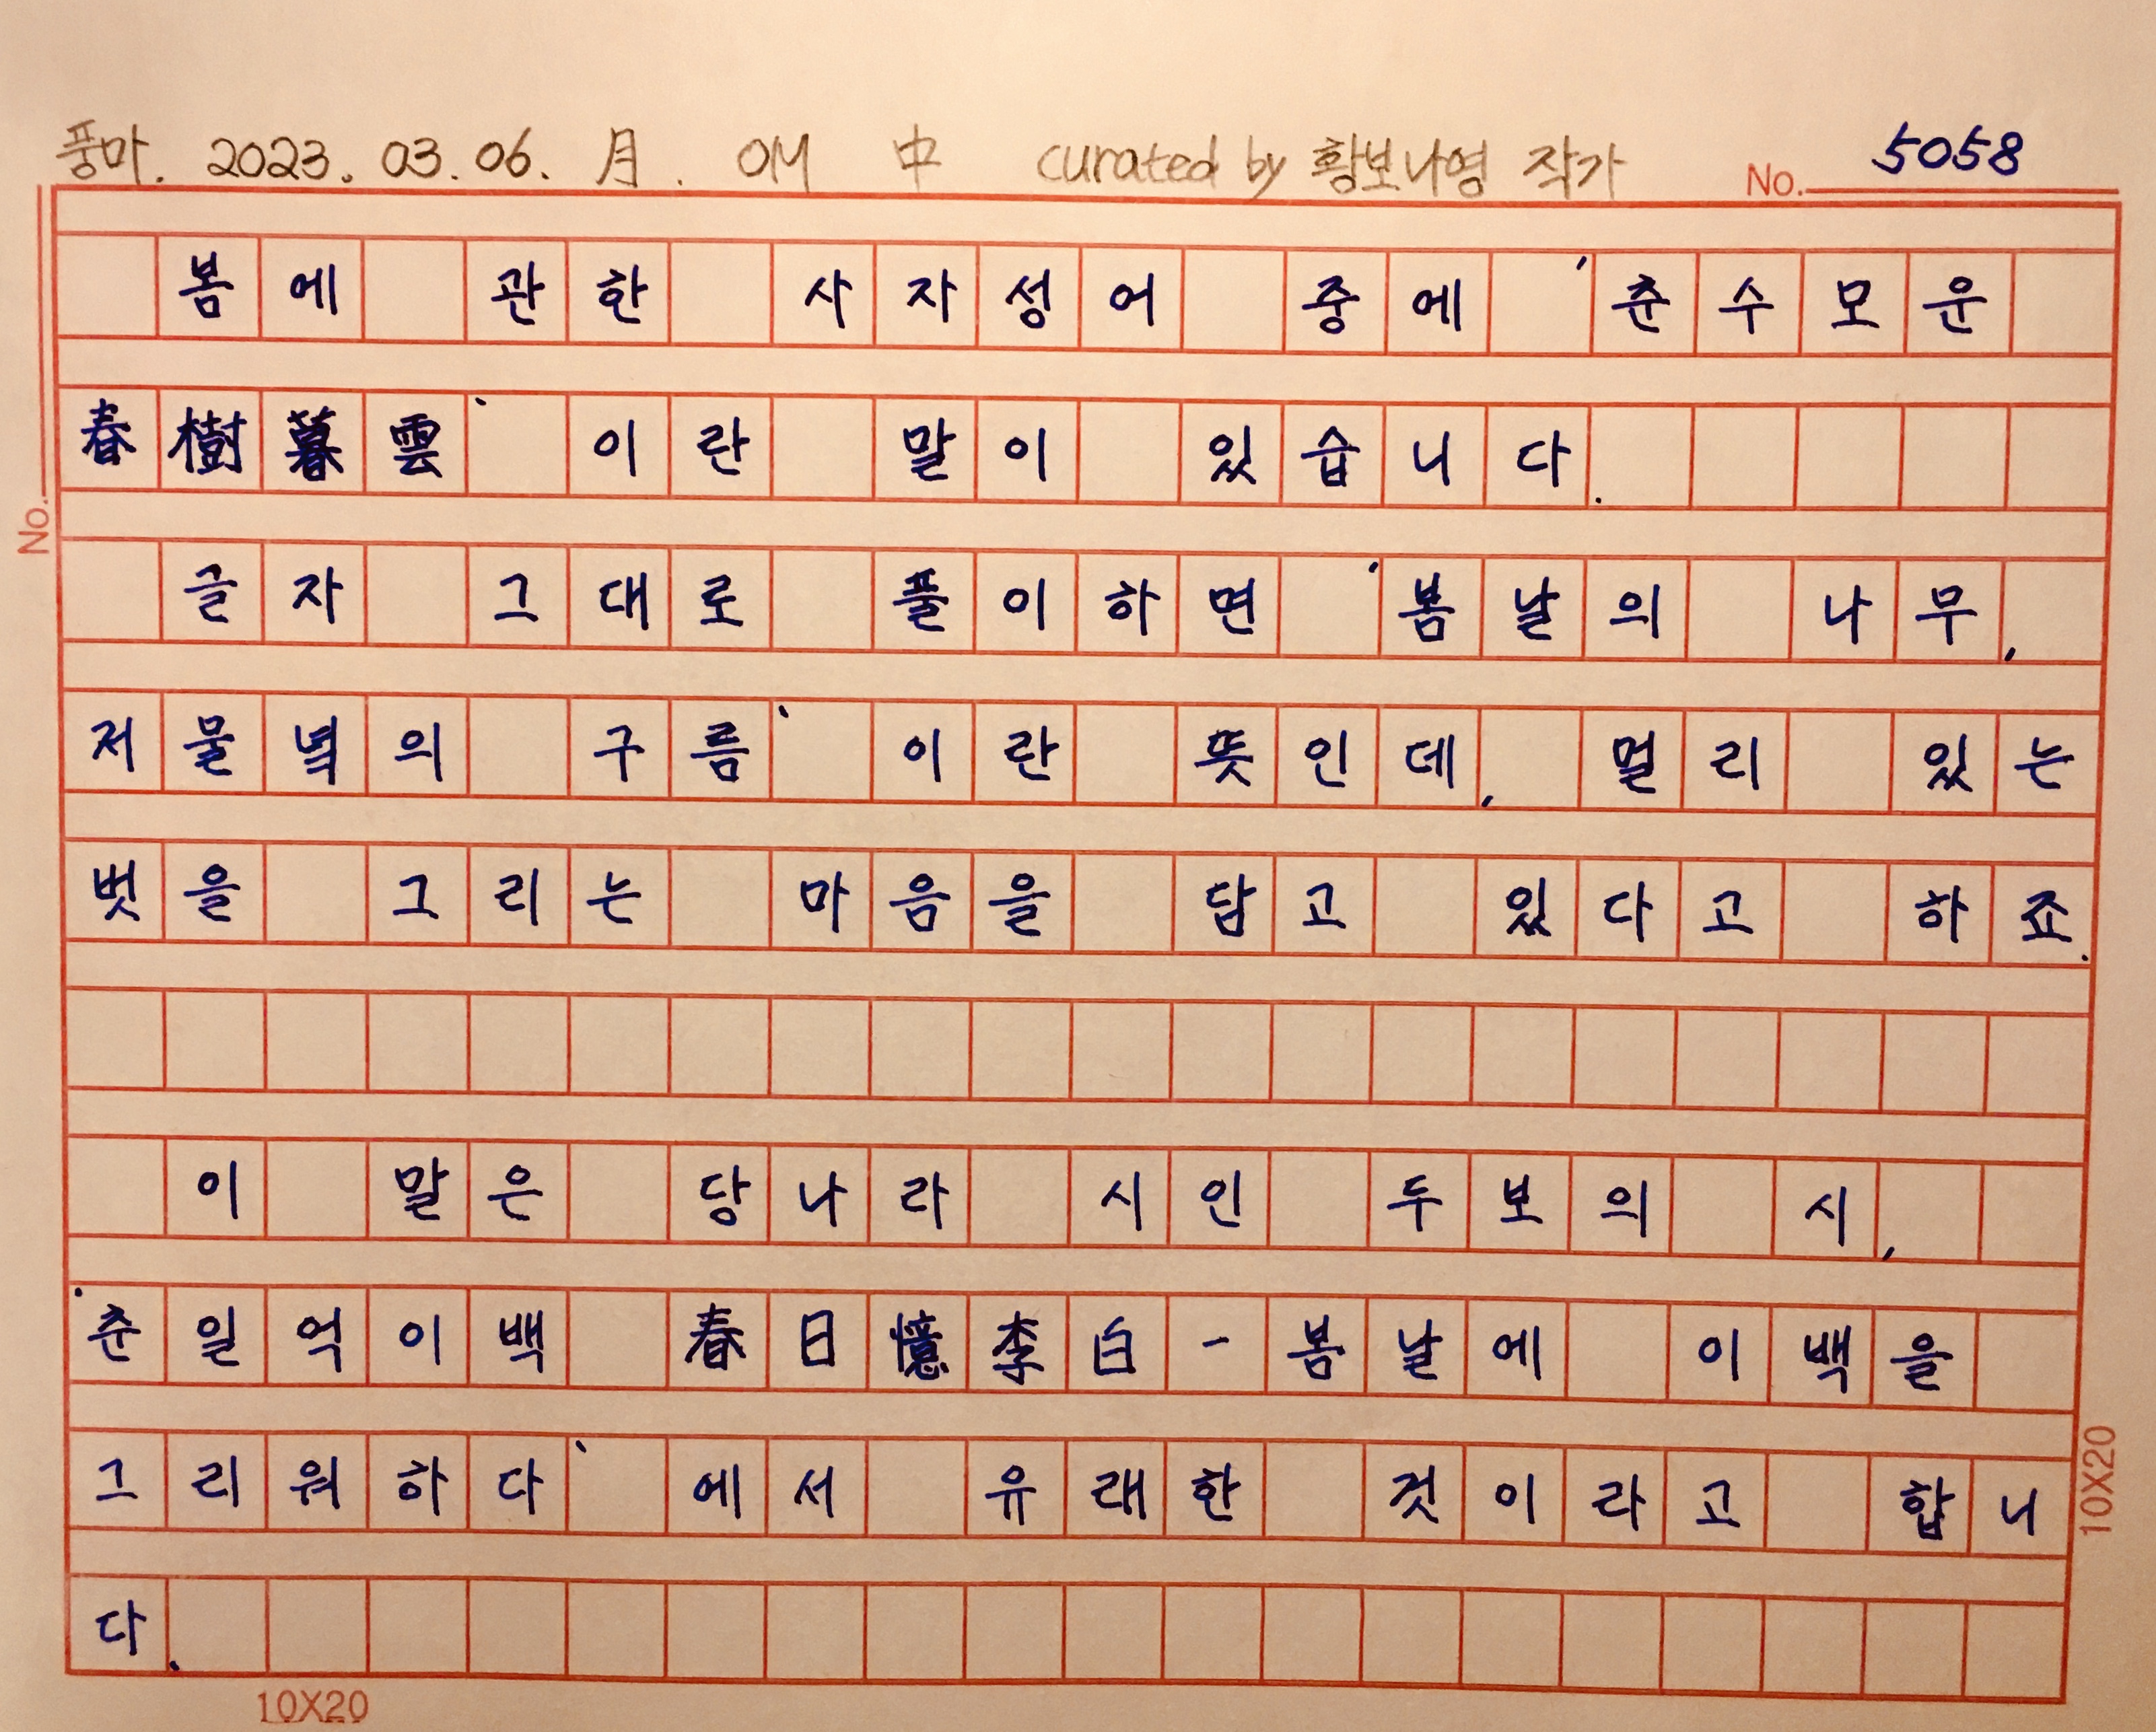 풍마. 2023. 03. 06. 月. OM 中 curated by 황보나영 작가 No. 5058
봄에 관한 사자성어 중에 '춘수모운
春樹暮雲' 이란 말이 있습니다.
No.
글자 그대로 풀이하면 '봄날의 나무,
저물녘의 구름' 이란 뜻인데, 멀리 있는
벗을 그리는 마음을 담고 있다고 하죠.
이 말은 당나라 시인 두보의 시,
'춘일억이백 春日憶李白-봄날에 이백을
그리워하다' 에서 유래한 것이라고 합니
다.
10X20
10X20